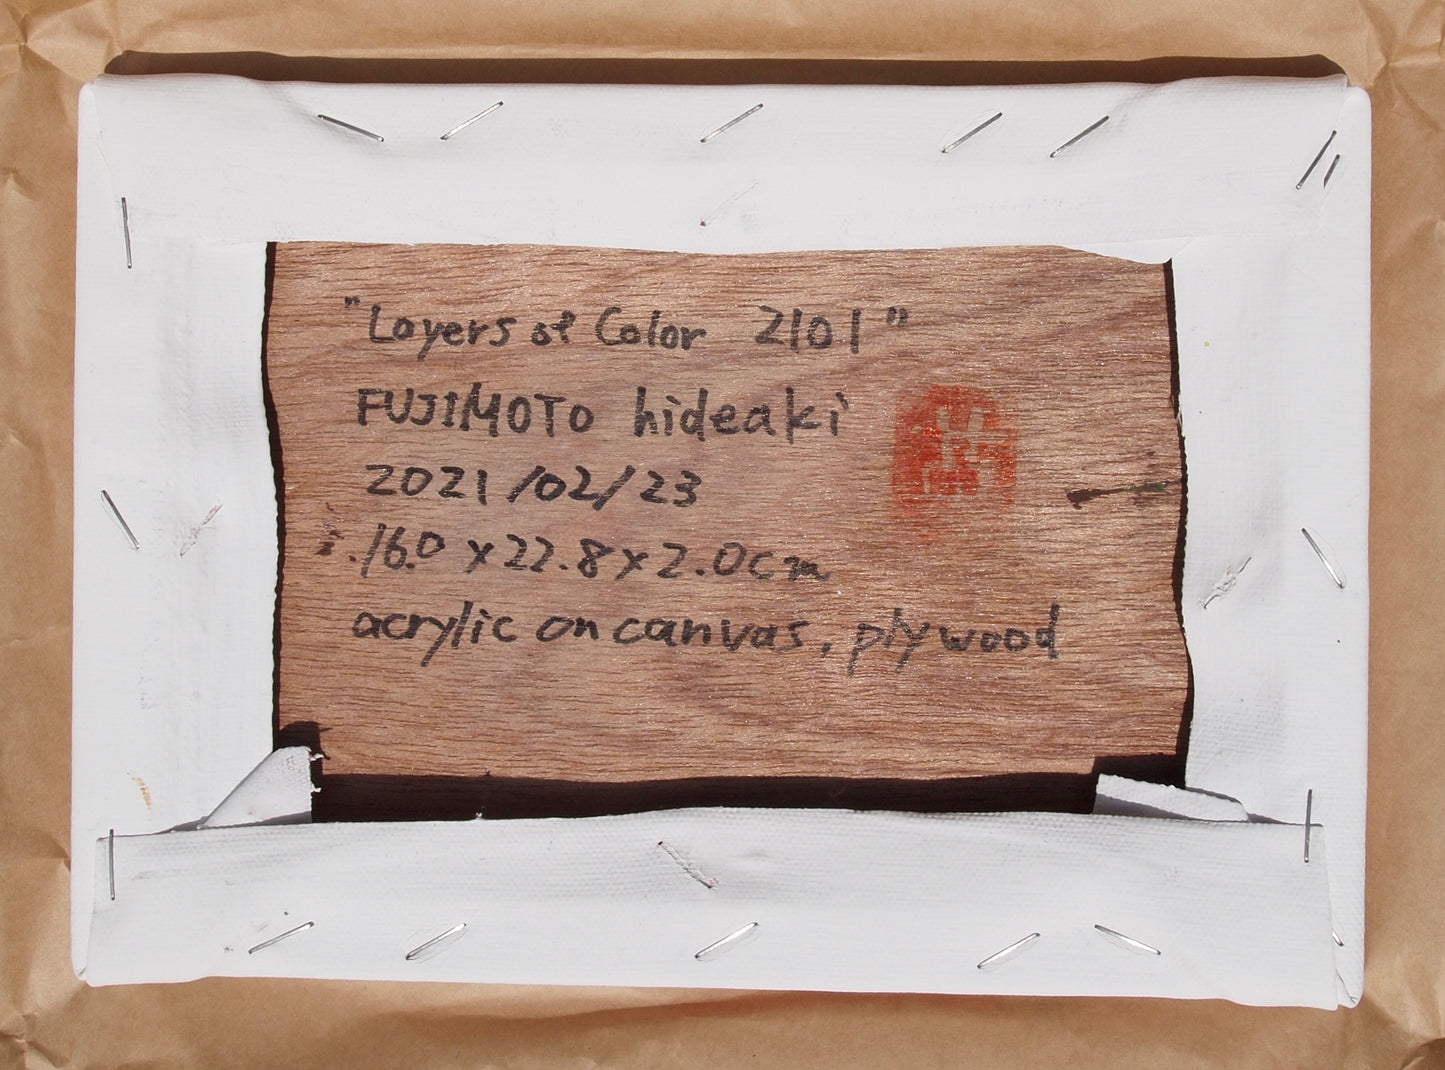 "Layers of Color 2101"
FUJIMOTO hideaki
2021/02/23
16.0 x 22.8 x 2.0cm
acrylic on canvas, plywood